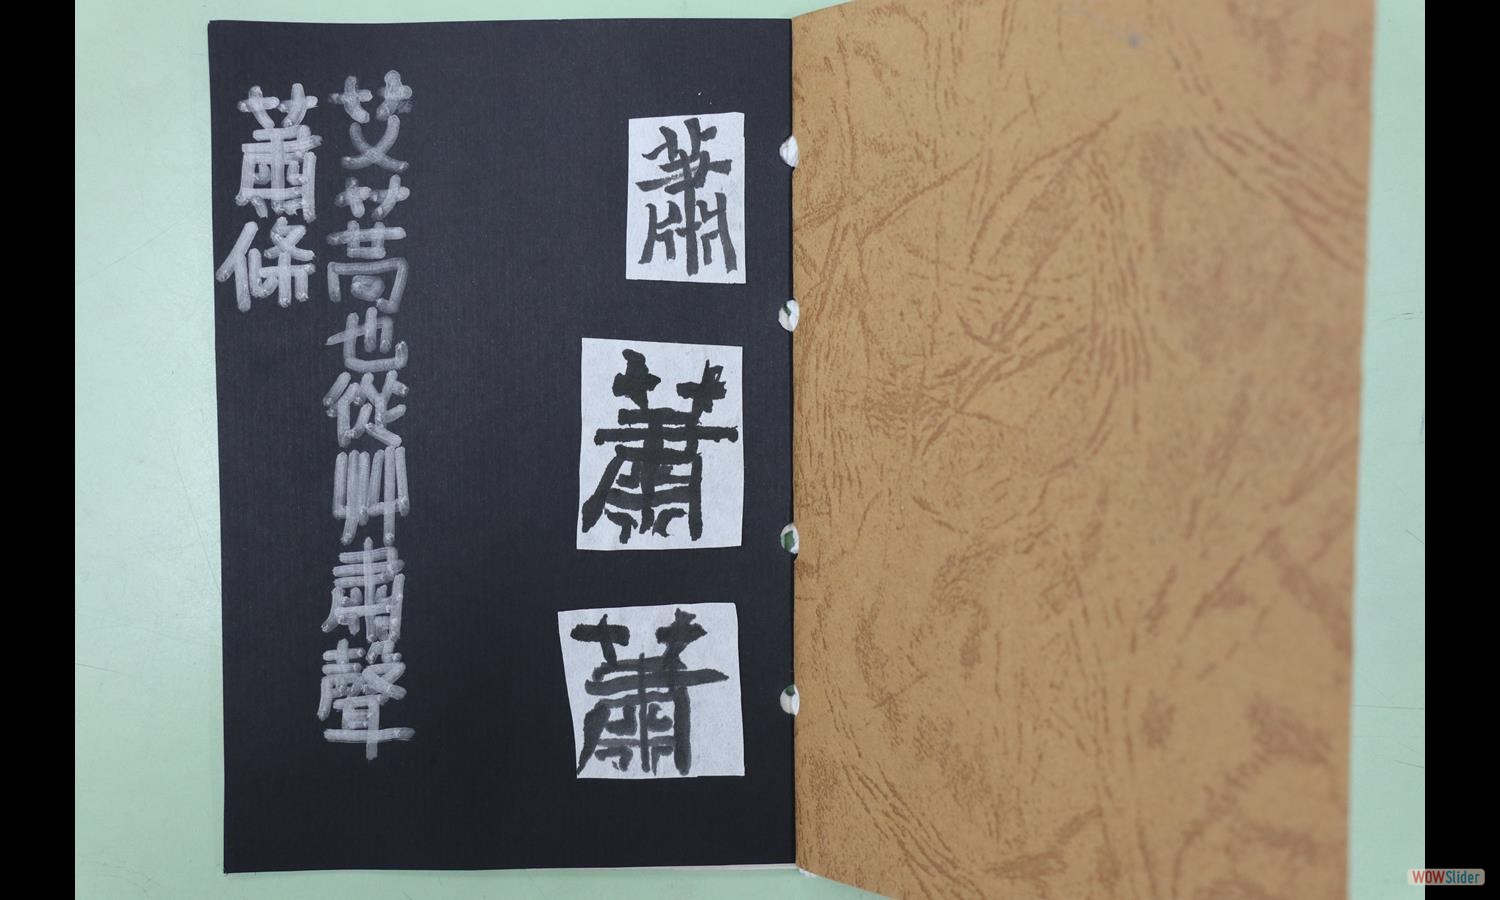 蕭
蕭
蕭
艾蒿也從艸肅聲
蕭條
WOWSlider